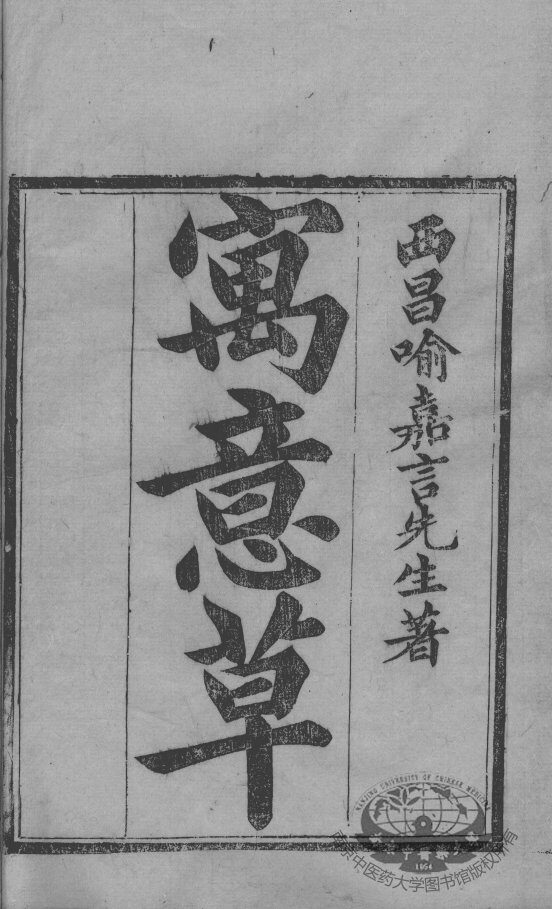 西昌喻嘉言先生著
寓意草
NANJING UNIVERSITY OF CHINESE MEDICINE
1954
南京中医药大学图书馆版权所有